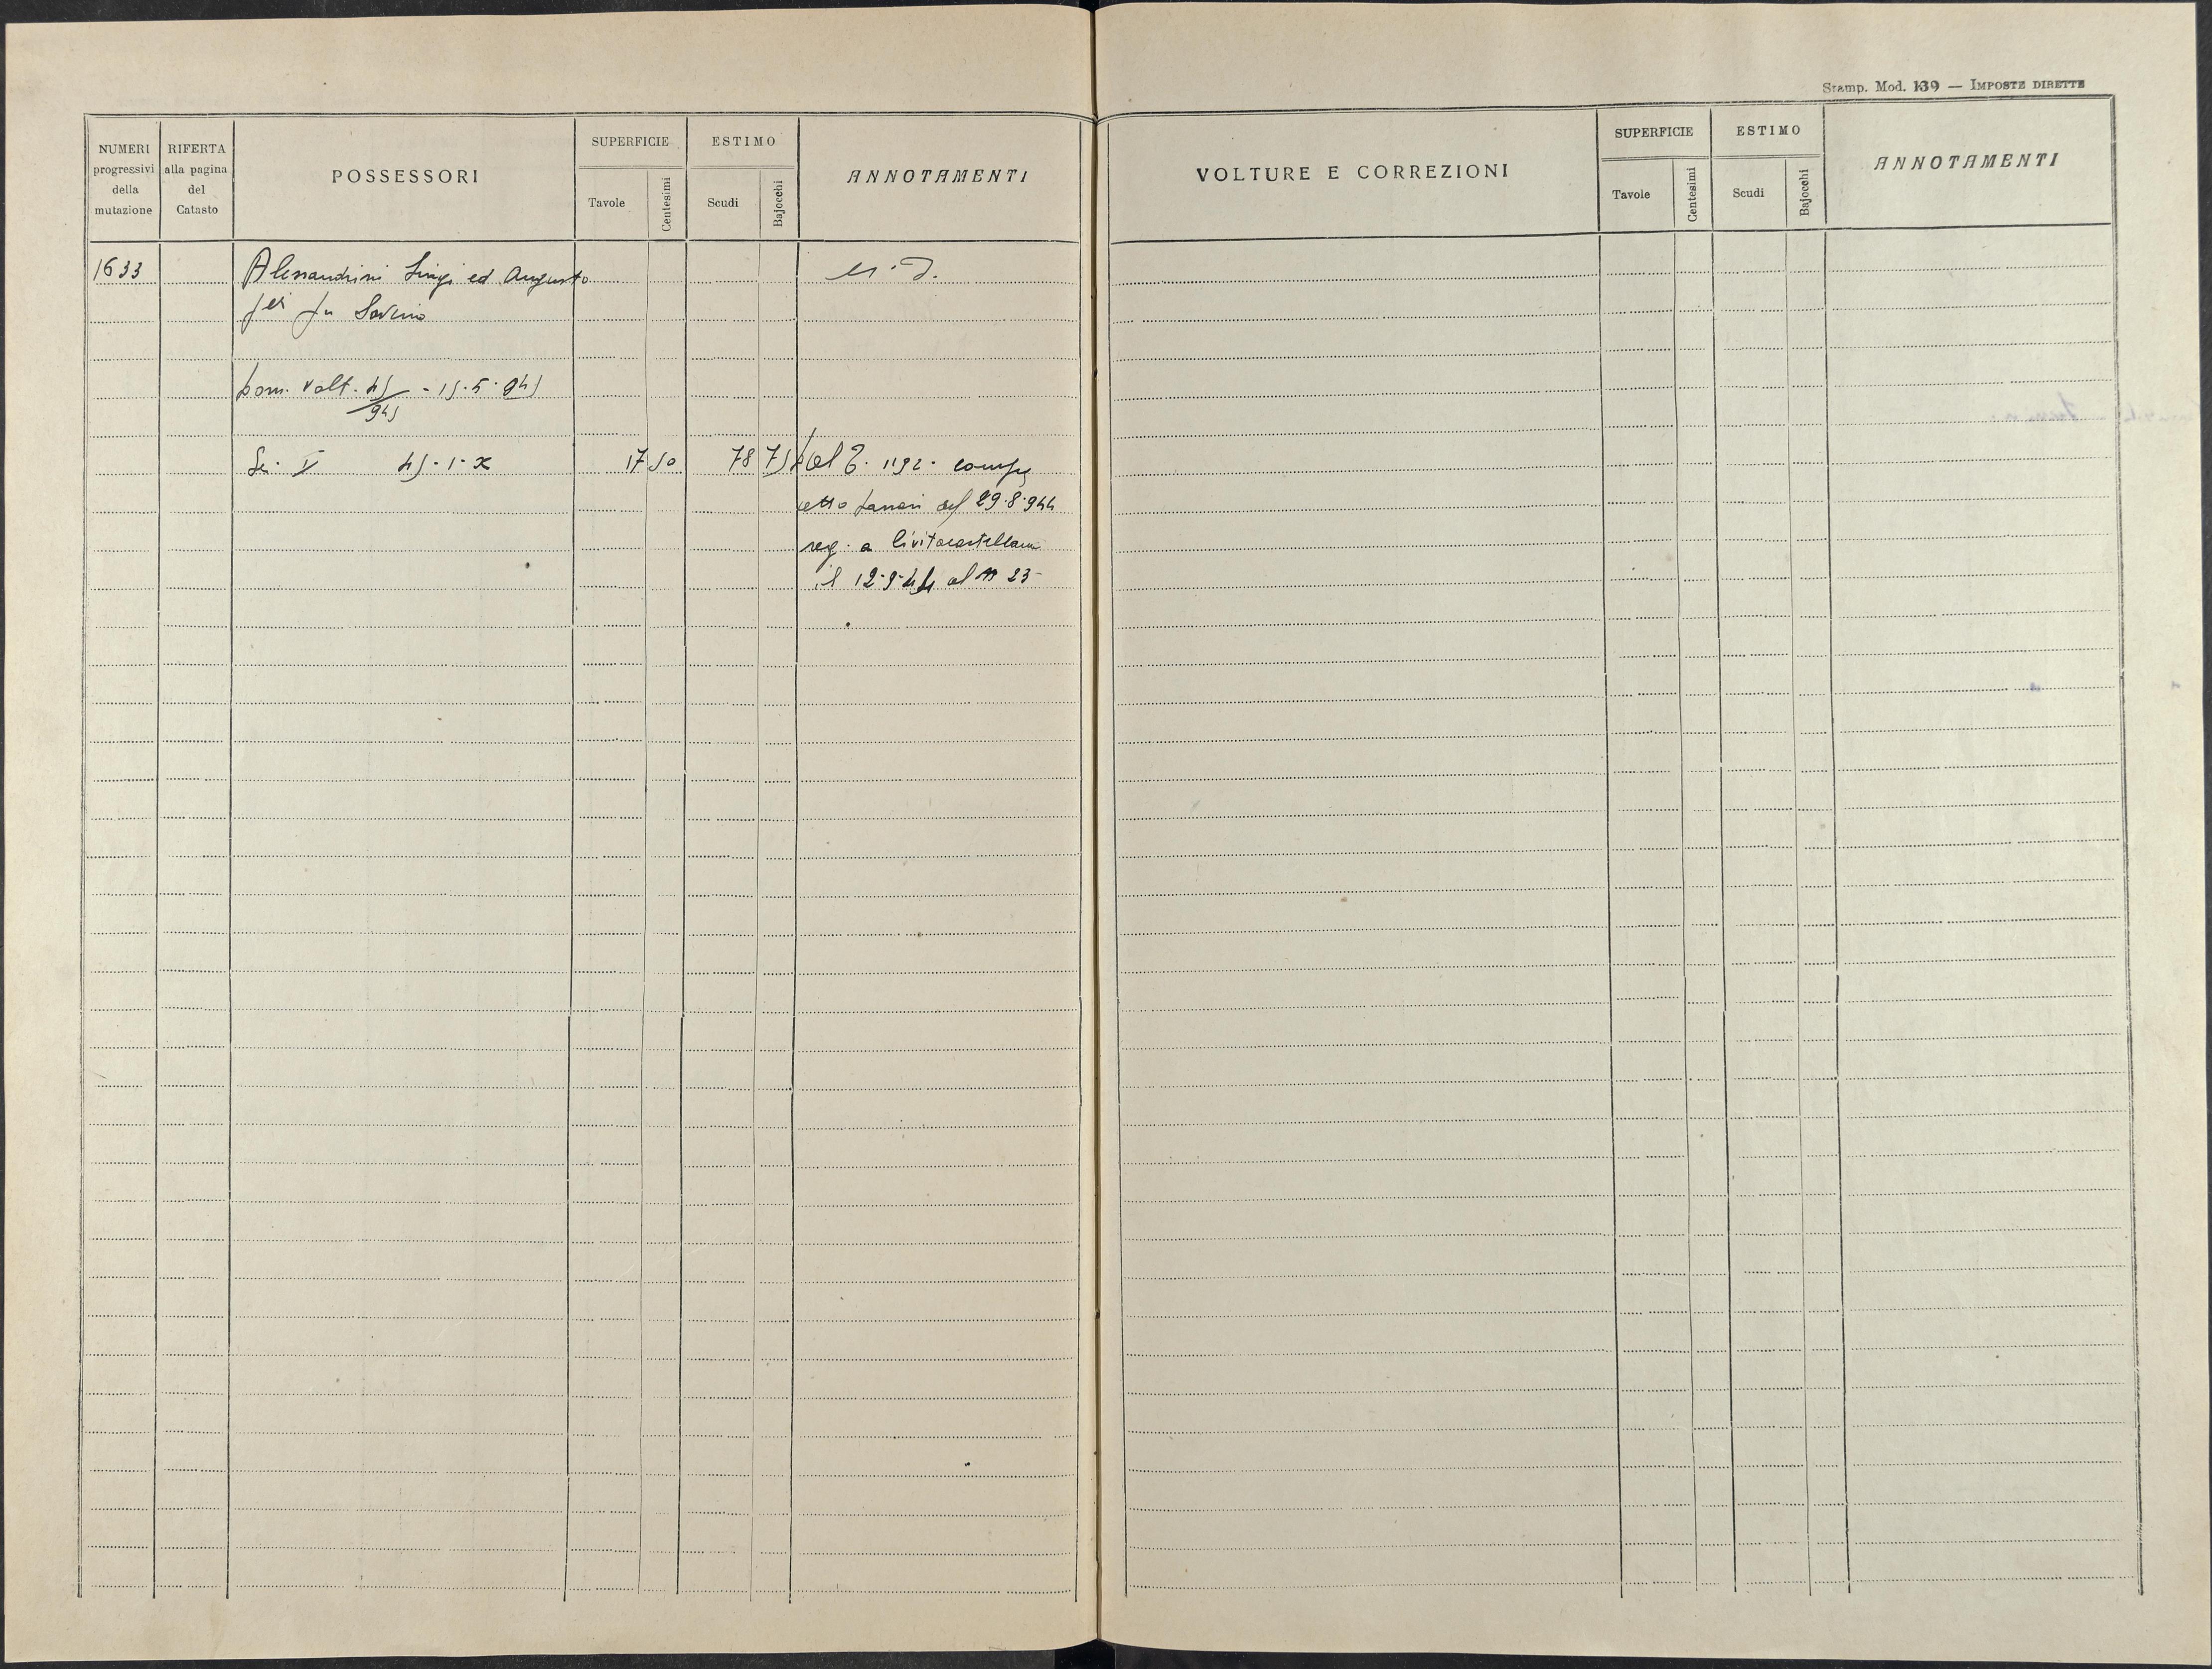 Stamp. Mod. 139 — IMPOSTE DIRETTE
NUMERI progressivi della mutazione
RIFERTA alla pagina del Catasto
POSSESSORI
SUPERFICIE
Tavole
Centesimi
ESTIMO
Scudi
Bajocchi
ANNOTAMENTI
VOLTURE E CORREZIONI
SUPERFICIE
Tavole
Centesimi
ESTIMO
Scudi
Bajocchi
ANNOTAMENTI
1633 Alessandrini Luigi ed Augusto
fu Savino
Dom. Volt. 45/945 - 15·5·945
Se. I 45·1· 17 50 78 75 Dal 1192 compra
atto del 29·8·944
reg. a Civitacastellana
il 12·9·44 al N 23